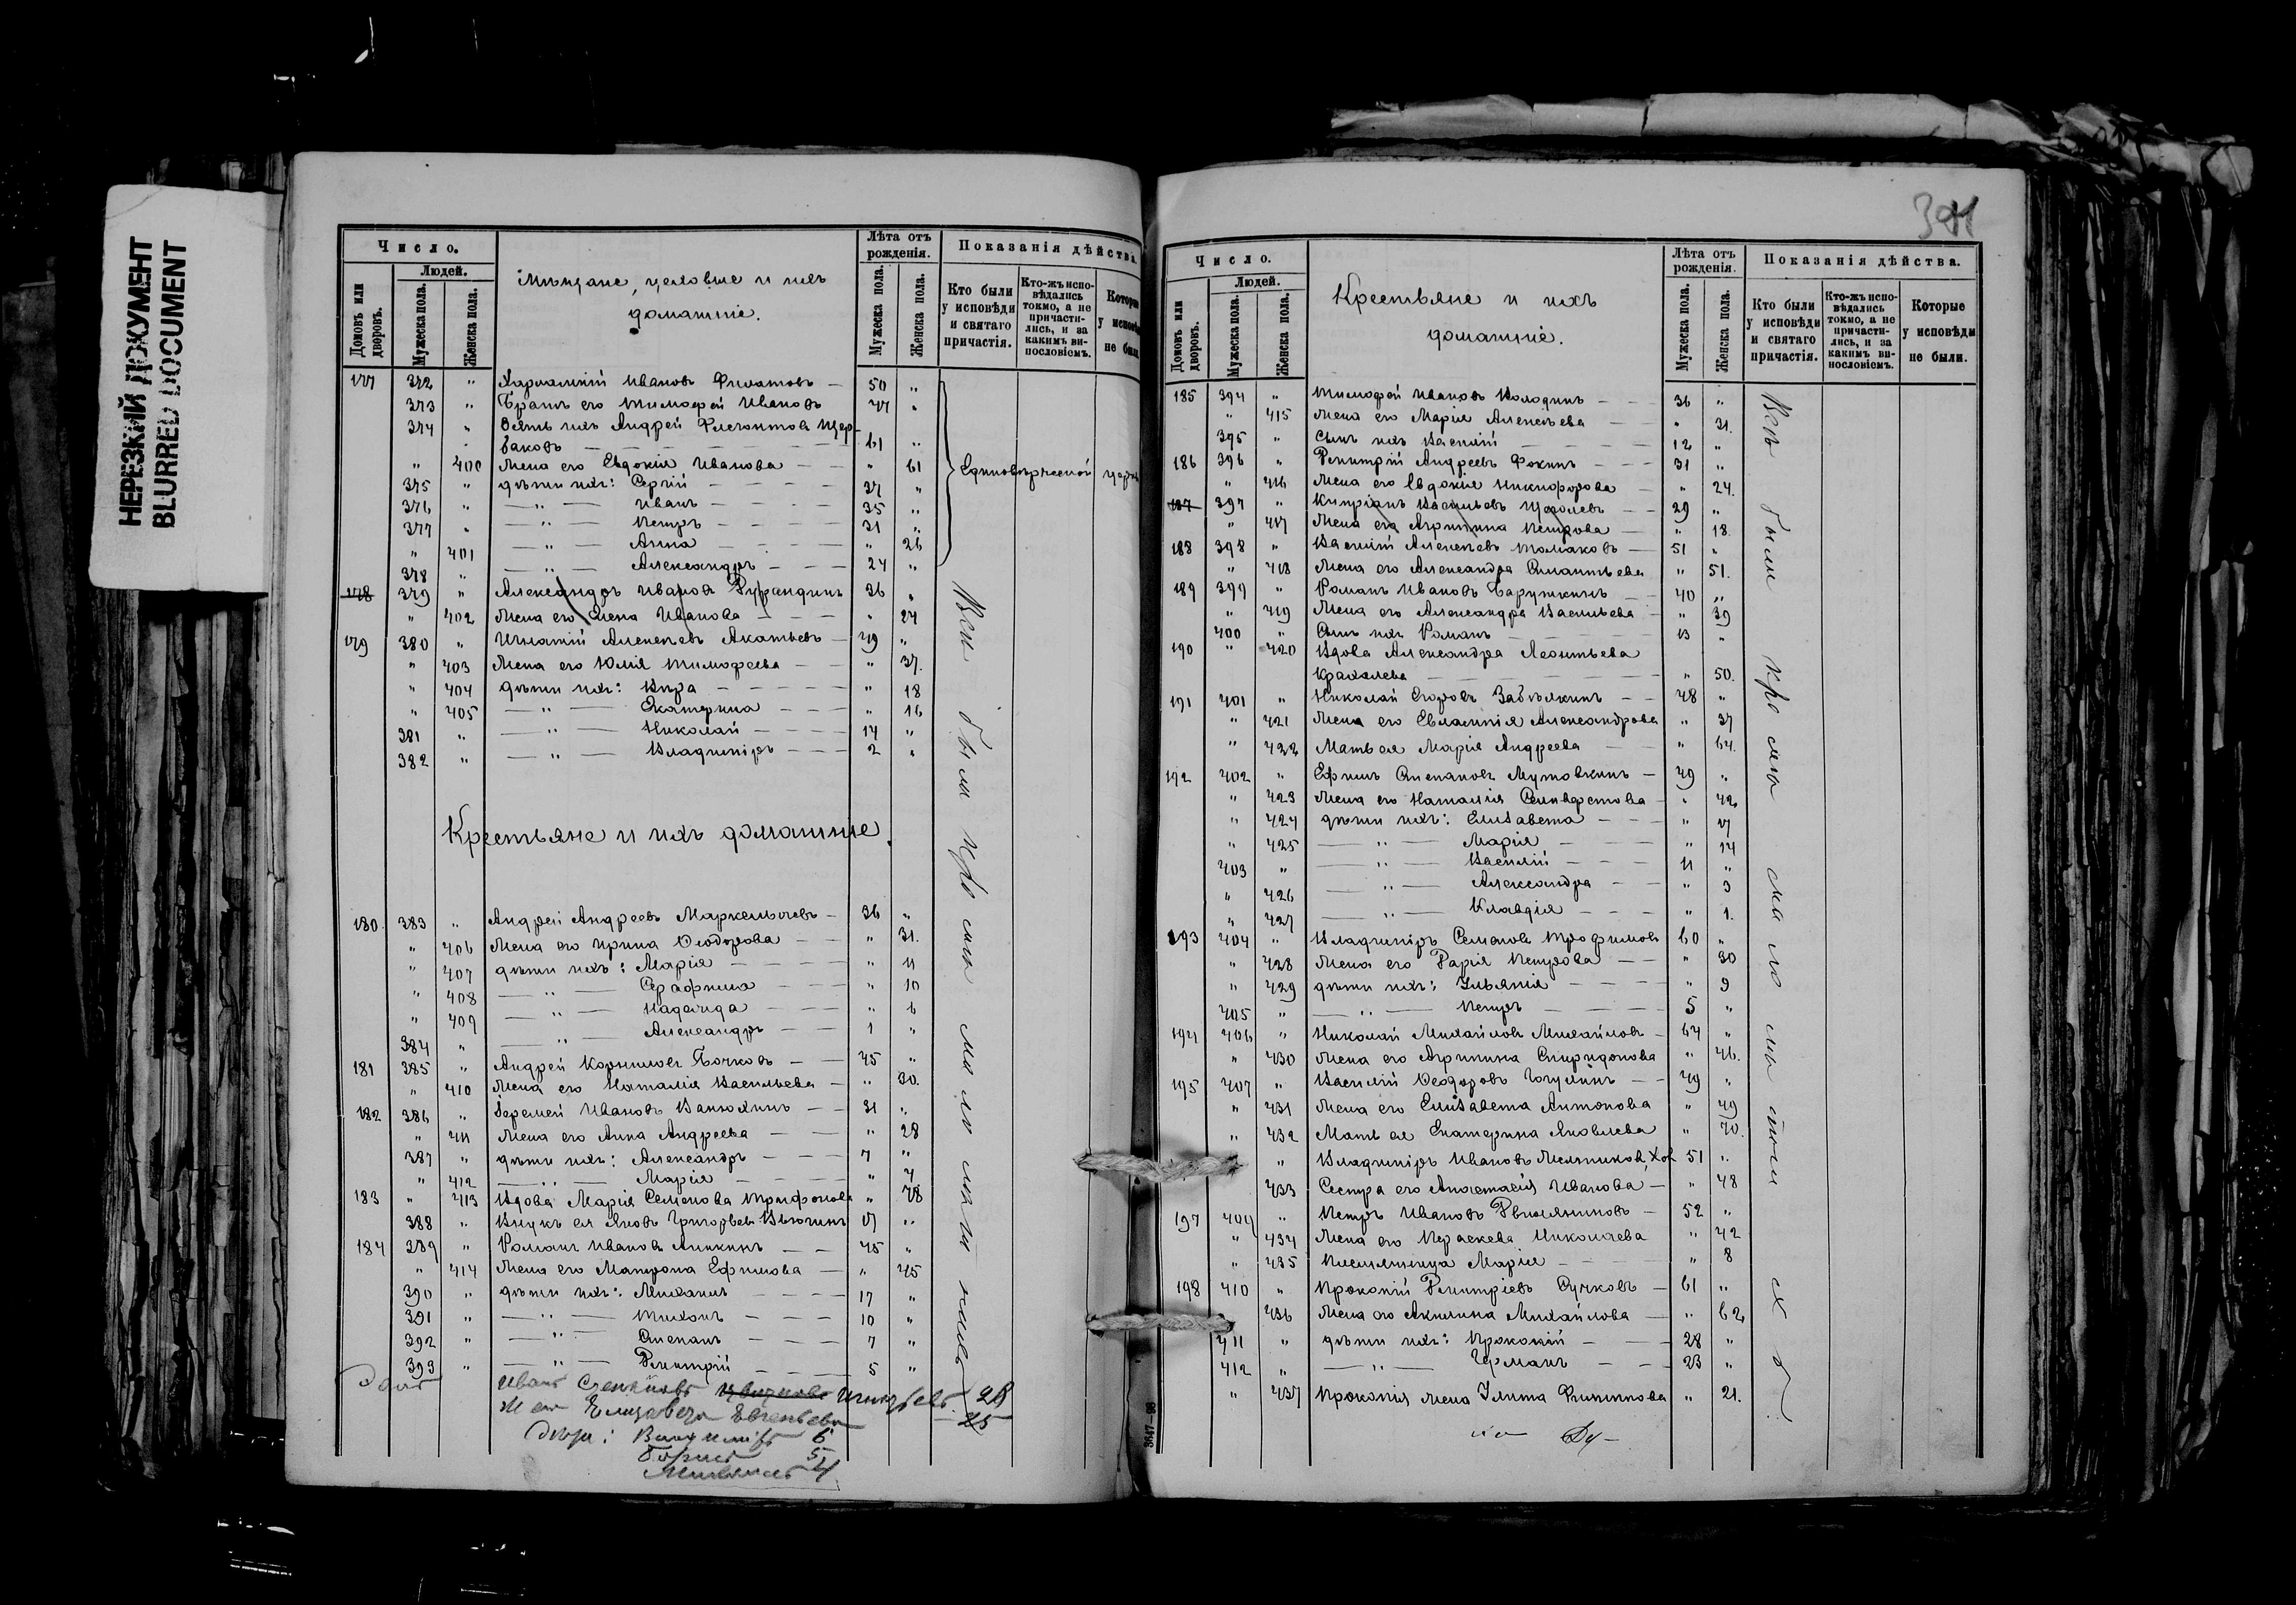 НЕРЕЗКИЙ ДОКУМЕНТ
BLURRED DOCUMENT
Число.
Людей.
Домовъ или дворовъ.
Мужеска пола.
Женска пола.
Мѣщане, цеховые и ихъ
домашніе.
Лѣта отъ рожденія.
Мужеска пола.
Женска пола.
Показанія дѣйства.
Кто были у исповѣди и святаго причастія.
Кто-жъ исповѣдались токмо, а не причастились, и за какимъ винословіемъ.
Которые у исповѣди не были
177 372 " Харлампій Ивановъ Филатовъ — 50 "
373 " Братъ его Тимофей Ивановъ 47 "
374 " Зять ихъ Андрей Флегонтовъ Щер-
баковъ — 61 "
" 400 Жена его Евдокія Иванова — " 61
375 " дѣти ихъ: Сергій — 37 "
376 " — " — Иванъ — 35 "
377 " — " — Петръ — 31 "
" 401 — " — Анна — " 26
378 " — " — Александръ — 24 "
Единовѣрческой
178 379 " Александръ Ивановъ 36 "
" 402 Жена его Елена Иванова — " 24
179 380 " Игнатій Алексѣевъ Акатьевъ — 49 "
" 403 Жена его Юлія Тимофеева — " 37.
" 404 дѣти ихъ: Вѣра — " 18
" 405 — " — Екатерина — " 16
381 " — " — Николай — 14 "
382 " — " — Владиміръ — 2 "
Крестьяне и ихъ домашніе.
180. 383 " Андрей Андреевъ Маркелычевъ — 36 "
" 406 Жена его Ирина Ѳеодорова — " 31.
" 407 дѣти ихъ: Марія — " 11
" 408 — " — Серафима — " 10
" 409 — " — Надежда — " 6
384 " — " — Александръ — 1 "
181 385 " Андрей Корниловъ Бочковъ — 45 "
" 410 Жена его Наталія Васильева — " 30.
182 386 " Еремей Ивановъ Ванюхинъ — 31 "
" 411 Жена его Анна Андреева — " 28
387 " дѣти ихъ: Александръ — 7 "
" 412 — " — Марія — " 4
183 " 413 Вдова Марія Семенова Трифонова " 78
388 " Внукъ ея Яковъ Григорьевъ 17 "
184 389 " Романъ Ивановъ Аникинъ — 45 "
" 414 Жена его Матрона Ефимова — " 45
390 " дѣти ихъ: Михаилъ — 17 "
391 " — " — Тихонъ — 10 "
392 " — " — Степанъ — 7 "
393 " — " — Димитрій — 5 "
Иванъ 28
Ж его Елизавета Евгеньева — 25
Дѣти: 6
Борисъ 5
4
391
Число.
Людей.
Домовъ или дворовъ.
Мужеска пола.
Женска пола.
Крестьяне и ихъ
домашніе.
Лѣта отъ рожденія.
Мужеска пола.
Женска пола.
Показанія дѣйства.
Кто были у исповѣди и святаго причастія.
Кто-жъ исповѣдались токмо, а не причастились, и за какимъ винословіемъ.
Которые у исповѣди не были.
185 394 " Тимофей Ивановъ Колодинъ — 36 "
" 415 Жена его Марія Алексѣева — " 31.
395 " Сынъ ихъ Василій — 12 "
186 396 " Димитрій Андреевъ Фокинъ — 31 "
" 416 Жена его Евдокія Никифорова — " 24.
187 397 " Кипріанъ Васильевъ Щеголевъ — 29 "
" 417 Жена его Агрипина Петрова — " 18.
188 398 " Василій Алексѣевъ Толмаковъ — 51 "
" 418 Жена его Александра Силантьева " 51.
189 399 " Романъ Ивановъ Барушкинъ — 40 "
" 419 Жена его Александра Васильева — " 39
400 " Сынъ ихъ Романъ — 13 "
190 " 420 Вдова Александра Леонтьева
Крахалева — " 50.
191 401 " Николай Егоровъ Забѣлкинъ — 48 "
" 421 Жена его Евлампія Александрова " 37
" 422 Мать ея Марія Андреева — " 64.
192 402 " Ефимъ Степановъ Мутовкинъ — 49 "
" 423 Жена его Наталія Селивѣрстова — " 42
" 424 дѣти ихъ: Елизавета — " 17
" 425 — " — Марія — " 14
403 " — " — Василій — 11 "
" 426 — " — Александра — " 3
" 427 — " — Клавдія — " 1.
193 404 " Владиміръ Семеновъ Трофимовъ 60 "
" 428 Жена его Дарія Петрова — " 30
" 429 дѣти ихъ: Ульянія — " 9
405 " — " — Петръ — 5 "
194 406 " Николай Михайловъ Михайловъ — 64 "
" 430 Жена его Агрипина Спиридонова " 46.
195 407 " Василій Ѳеодоровъ Гогулинъ — 49 "
" 431 Жена его Елизавета Антонова " 49
" 432 Мать ея Екатерина Яковлева " 70.
" Владиміръ Ивановъ Мельниковъ, хол 51 "
433 Сестра его Анастасія Иванова — " 48
197 409 " Петръ Ивановъ 52 "
" 434 Жена его Параскева Николаева " 42
" 435 Племянница Марія — " 8
198 410 " Прокопій Димитріевъ Сучковъ — 61 "
436 Жена его Акилина Михайлова — " 62
411 " дѣти ихъ: Прокопій — 28 "
412 " — " — Германъ — 23 "
" 437 Прокопія жена Улита Филиппова " 21.
3647—98